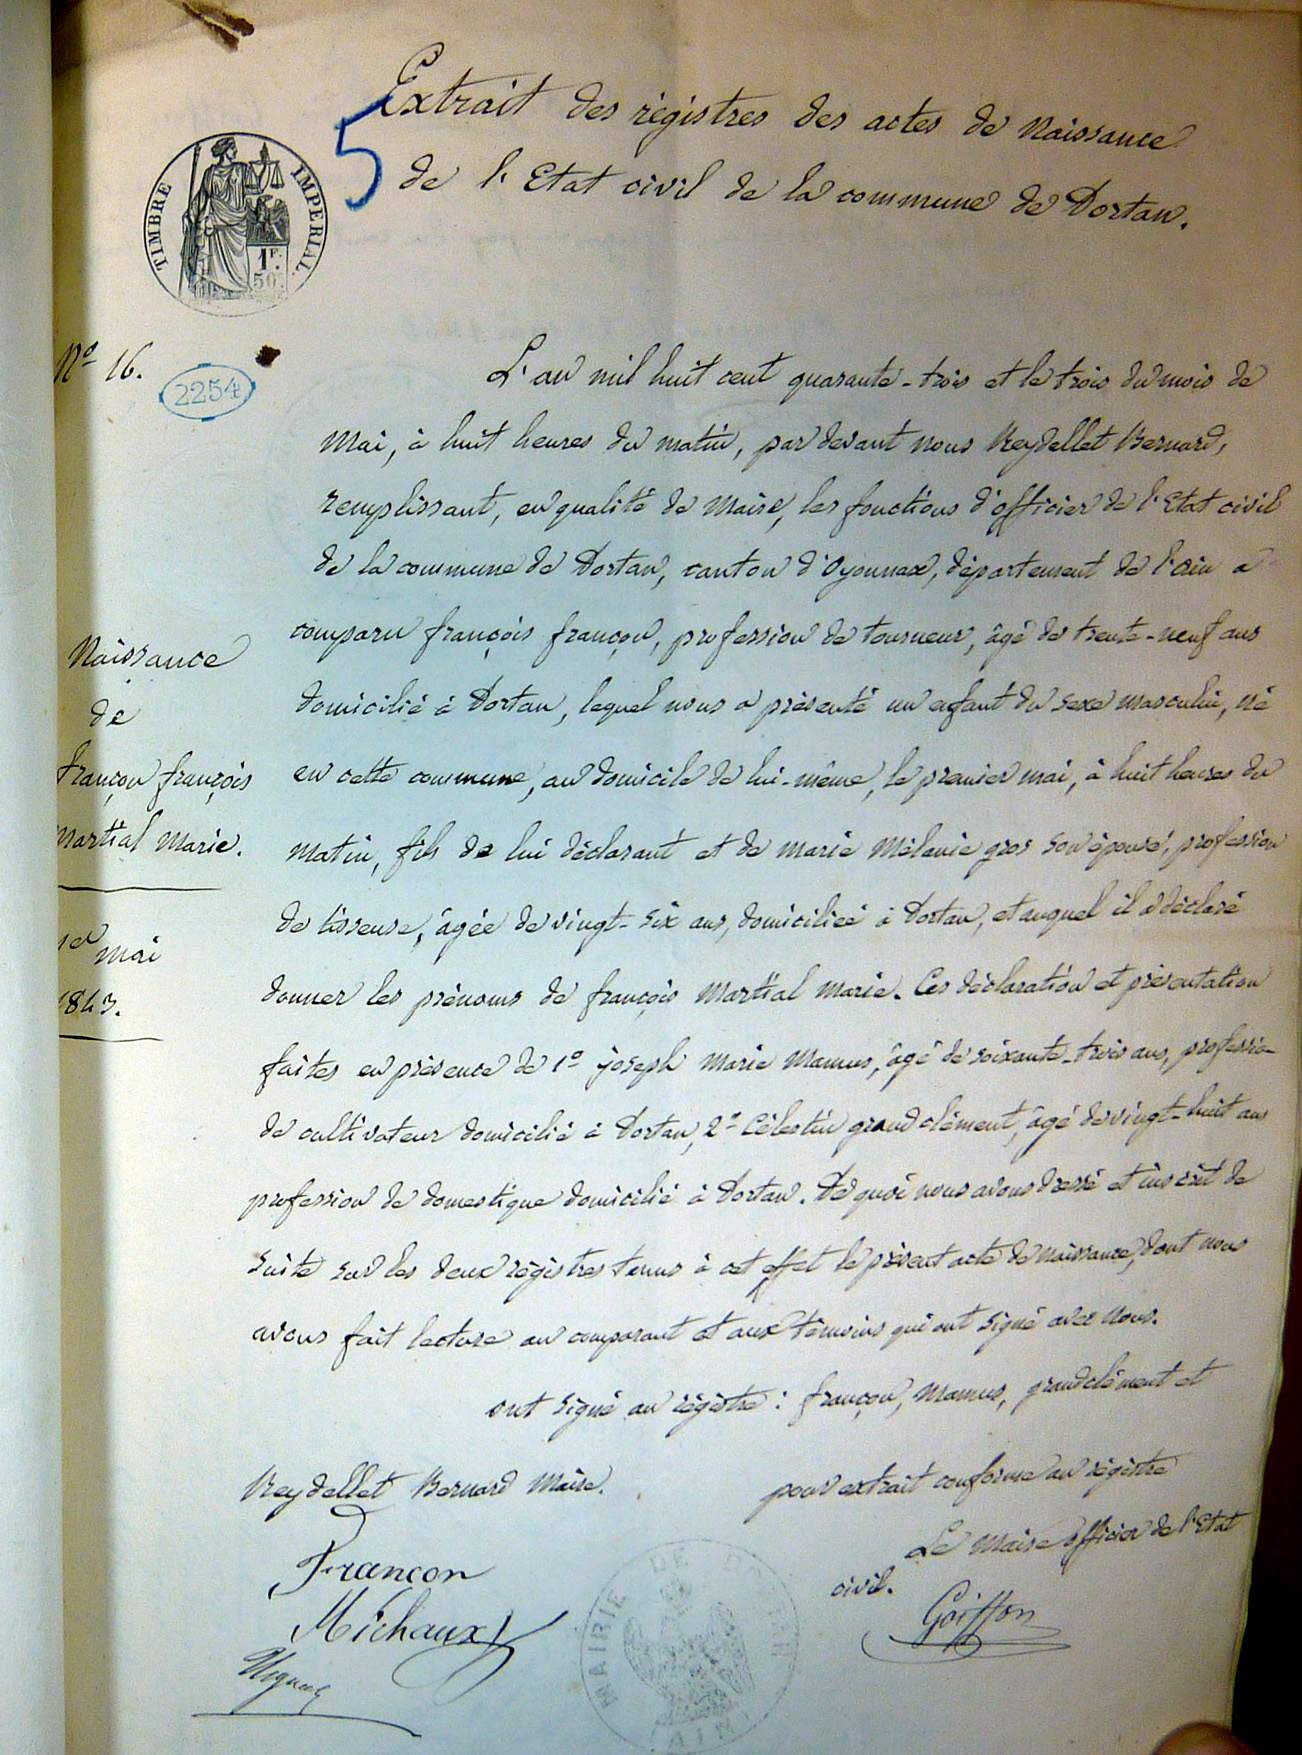 Extrait des régistres des actes de Naissance
5
de l'Etat civil de la commune de Dortan.
TIMBRE IMPERIAL.
1F.
50c
No 16.
2254
L'an mil huit cent quarante-trois et le trois du mois de
Mai, à huit heures du matin, par devant nous Reydellet Bernard,
remplissant, en qualité de Maire, les fonctions d'officier de l'Etat civil
de la commune de Dortan, canton d'Oyonnax, département de l'Ain a
comparu françois françon, profession de tourneur, âgé de trente-neuf ans
domicilié à Dortan, lequel nous a présenté un enfant du sexe masculin, né
en cette commune, au domicile de lui-même, le premier mai, à huit heures du
matin, fils de lui déclarant et de marie Mélanie gros son épouse, profession
de tisseuse, âgée de vingt-six ans, domiciliée à Dortan, et auquel il a déclaré
donner les prénoms de françois Martial Marie. Ces déclaration et présentation
faites en présence de 1o joseph Marie Mamus, âgé de soixante-trois ans, profession
de cultivateur domicilié à Dortan, 2o Célestin grandclément, âgé de vingt-huit ans
profession de domestique domicilié à Dortan. De quoi nous avons dressé et inscrit de
suite sur les deux régistres tenus à cet effet le présent acte de naissance, dont nous
avons fait lecture au comparant et aux témoins qui ont signé avec nous.
ont signé au régistre : françon, Mamus, grandclément et
Reydellet Bernard Maire.
Naissance
de
françon françois
Martial Marie.
1er mai
1843.
pour extrait conforme au régistre
Le Maire officier de l'Etat
civil.
Goiffon
Françon
Michaux
MAIRIE DE DORTAN
(AIN)